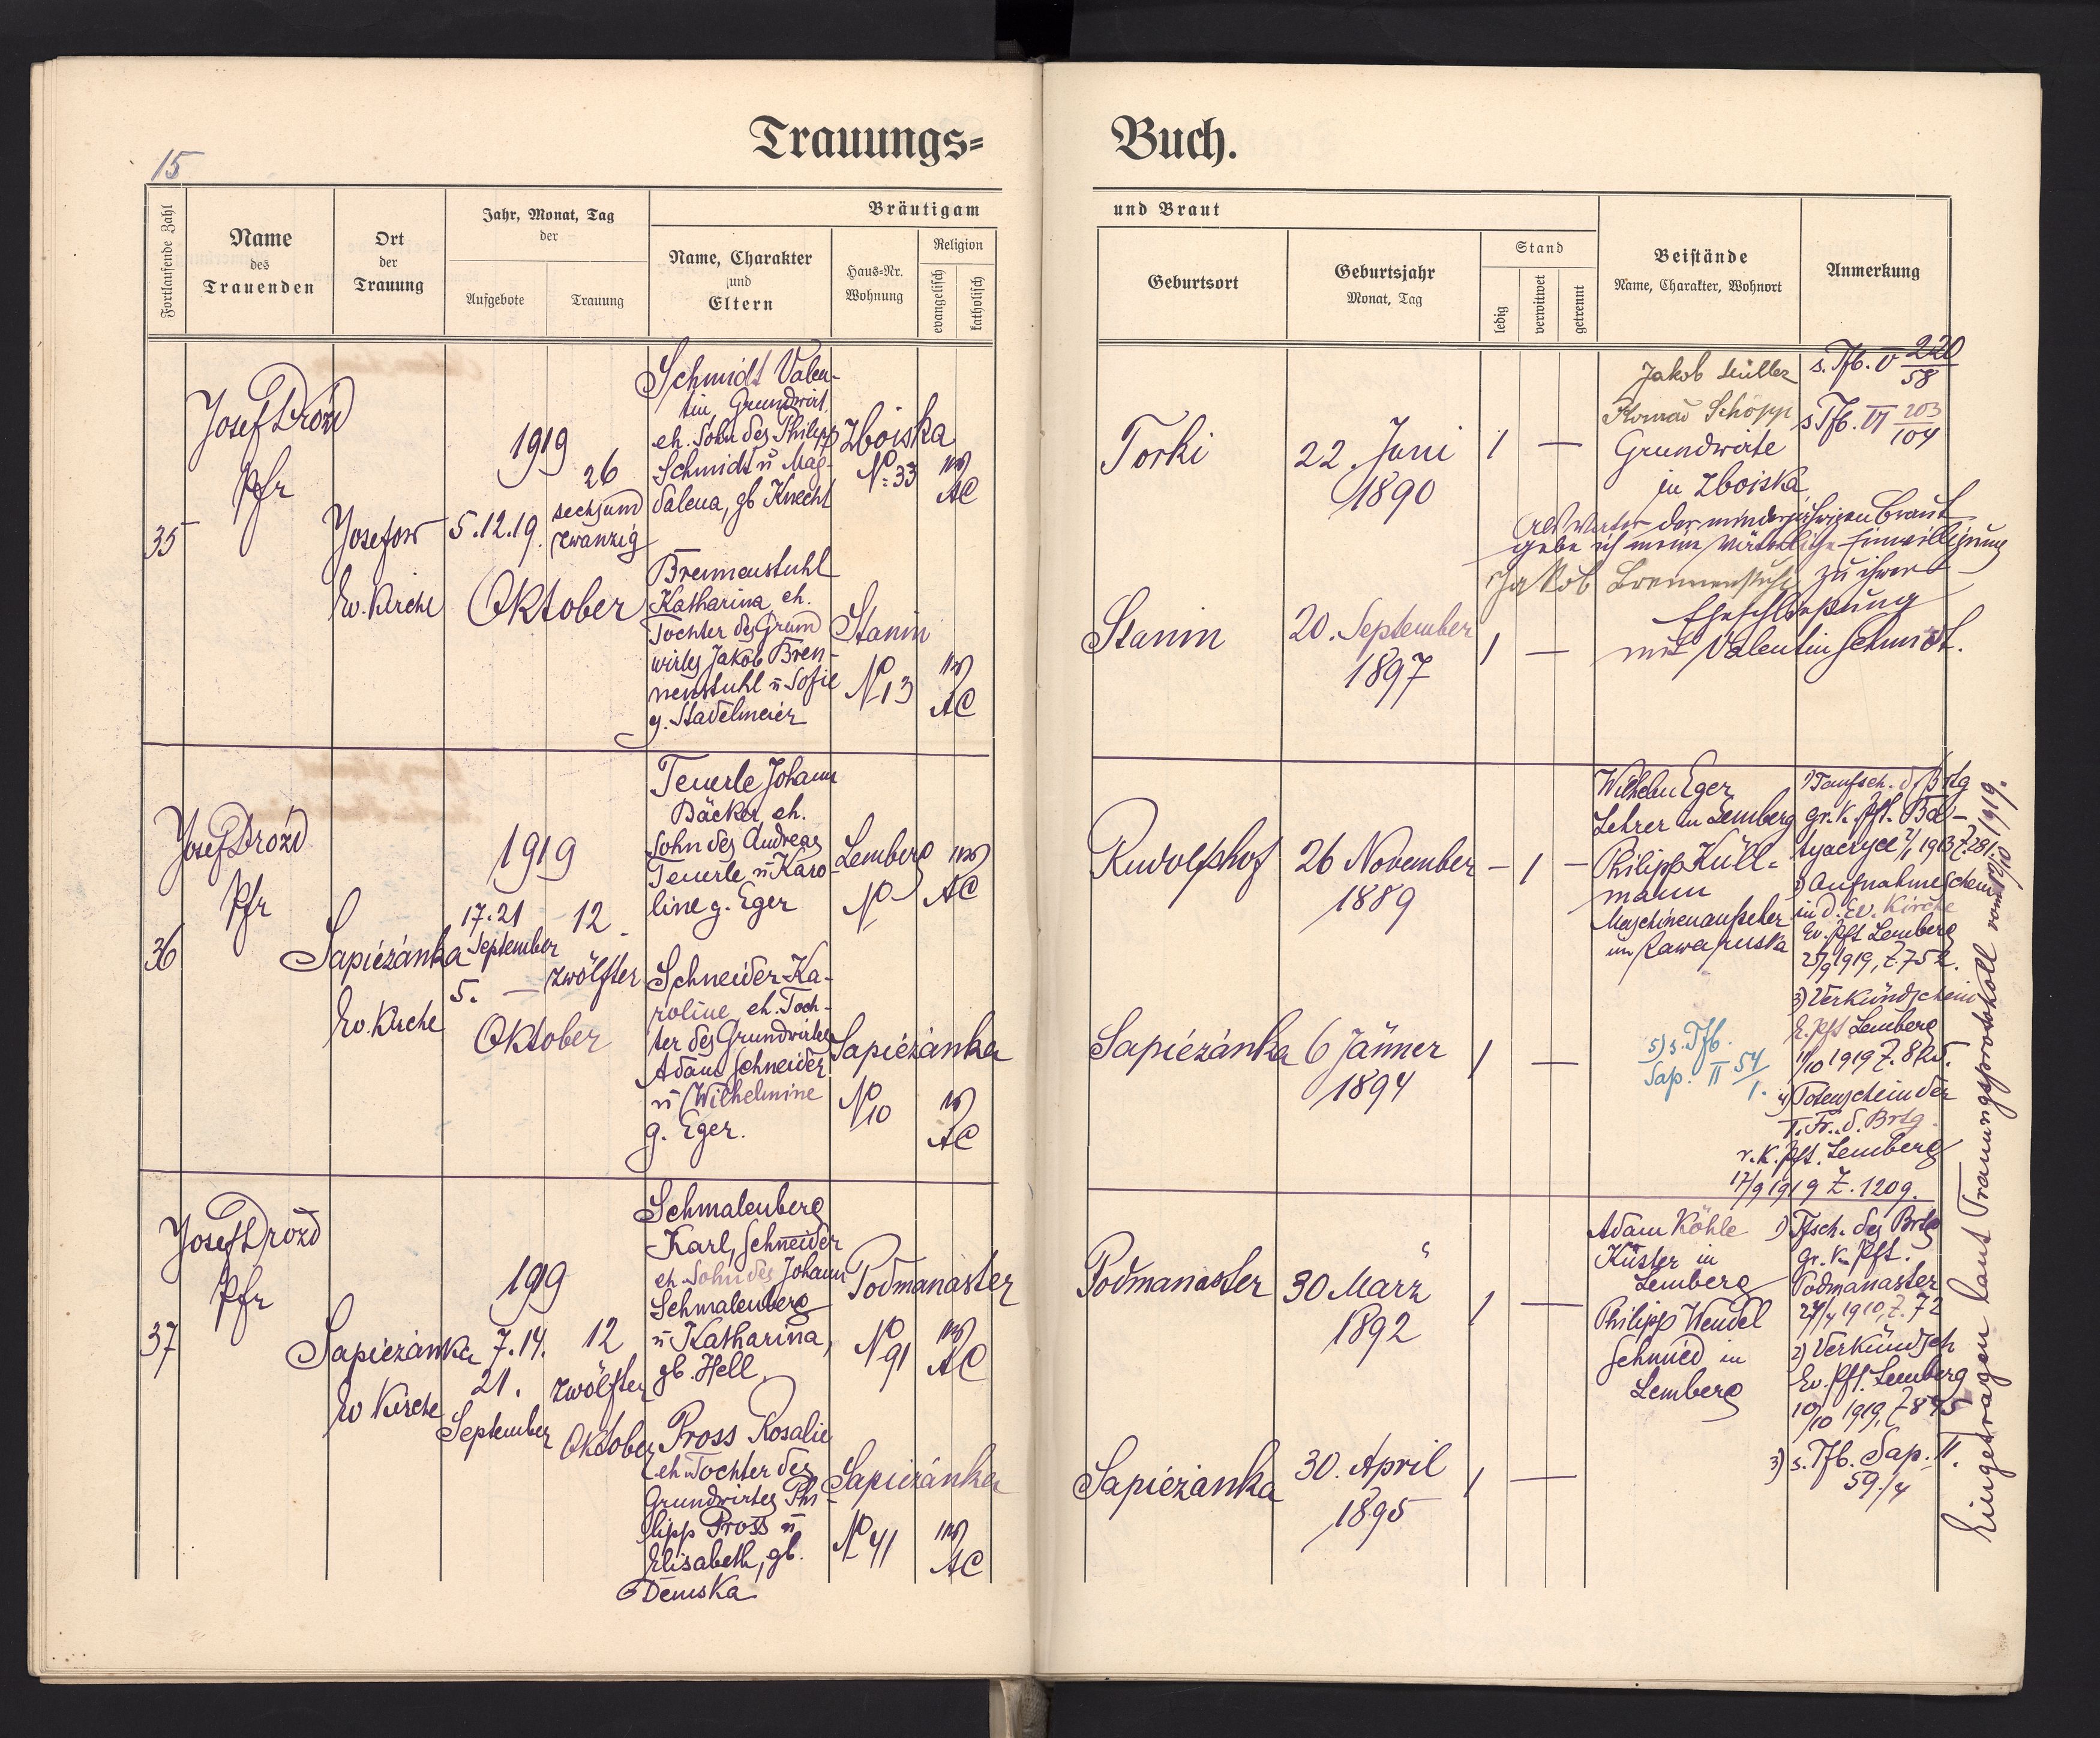 15
Trauungs=
Buch.
Fortlaufende Zahl
Name
des
Trauenden
Ort
der
Trauung
Jahr, Monat, Tag
der
Aufgebote
Trauung
Bräutigam
Name, Charakter
und
Eltern
Haus-Nr.
Wohnung
Religion
evangelisch
katholisch
und Braut
Geburtsort
Geburtsjahr
Monat, Tag
Stand
ledig
verwitwet
getrennt
Beistände
Name, Charakter, Wohnort
Anmerkung
35
Josef Drozd
Pfr
Josefow
Ev. Kirche
1919
5. 12. 19.
26
sechsund
zwanzig
Oktober
Schmidt Valen-
tin Grundwirt,
eh. Sohn des Philipp
Schmidt u Mag-
dalena, gb Knecht
Zboiska
No 33
AC
Torki
22. Juni
1890
1 —
Jakob Müller
Konrad Schöpp
Grundwirte
in Zboiska
s. Tfb. V 220
58
s Tfb. VI 203
104
Als Vater der minderjährigen Braut
gebe ich meine väterliche Einwilligung
Jakob Brennenstuhl zu ihrer
Eheschließung
mit Valentin Schmidt.
Brennenstuhl
Katharina, eh.
Tochter des Grund
wirtes Jakob Bren-
nenstuhl u Sofie
g. Stadelmeier
Stanin
No 13
AC
Stanin
20. September
1897
1 —
36
Josef Drozd
Pfr
Sapiéżánka
Ev. Kirche
1919
17. 21
September
5. —
12
zwölfter
Oktober
Teuerle Johann
Bäcker, eh.
Sohn des Andreas
Teuerle u Karo-
line g. Eger
Lemberg
No —
AC
Rudolfshof
26 November
1889
— 1 —
Wilhelm Eger
Lehrer in Lemberg
Philipp Küll-
mann
Maschinenaufseher
in Rawa ruska
1) Taufsch. d. Brtg
gr. k. Pft. Ba-
2) Aufnahmeschein
in d. Ev. Kirche
Ev. Pft Lemberg
25/9 1919, Z. 752.
3) Verkündschein
E. Pft Lemberg
11/10 1919 Z. 825.
4) Totenschein der
T. Fr. d. Brtg.
r. k. Pft. Lemberg
17/9 1919 Z. 1209.
5) s. Tfb.
Sap. II 54
1.
Schneider Ka-
roline, eh. Toch-
ter des Grundwirtes
Adam Schneider
u Wilhelmine
g. Eger.
Sapiéżánka
No 10
AC
Sapiéżánka
6 Jänner
1894
1 —
37
Josef Drozd
Pfr
Sapiéżánka
Ev Kirche
1919
7. 14.
21.
September
12
zwölfter
Oktober
Schmalenberg
Karl, Schneider
eh. Sohn des Johann
Schmalenberg
u Katharina,
gb. Hell
Podmanaster
No 91
AC
Podmanaster
30 März
1892
1 —
Adam Köhle
Küster in
Lemberg
Philipp Wendel
Schmied in
Lemberg
1) Tfsch. des Brtg
Gr. K. Pft.
Podmanaster
27/4 1910, Z. 72
2) Verkündsch
Ev. Pft. Lemberg
10/10 1919, Z 845
3) s. Tfb. Sap. II.
59./4
Pross Rosalie
eh Tochter des
Grundwirtes Phi-
lipp Pross u
Elisabeth, gb.
Demska
Sapiéżánka
No 41
AC
Sapiéżánka
30. April
1895
1 —
Eingetragen laut Trauungsprotokoll vom 12/10 1919.